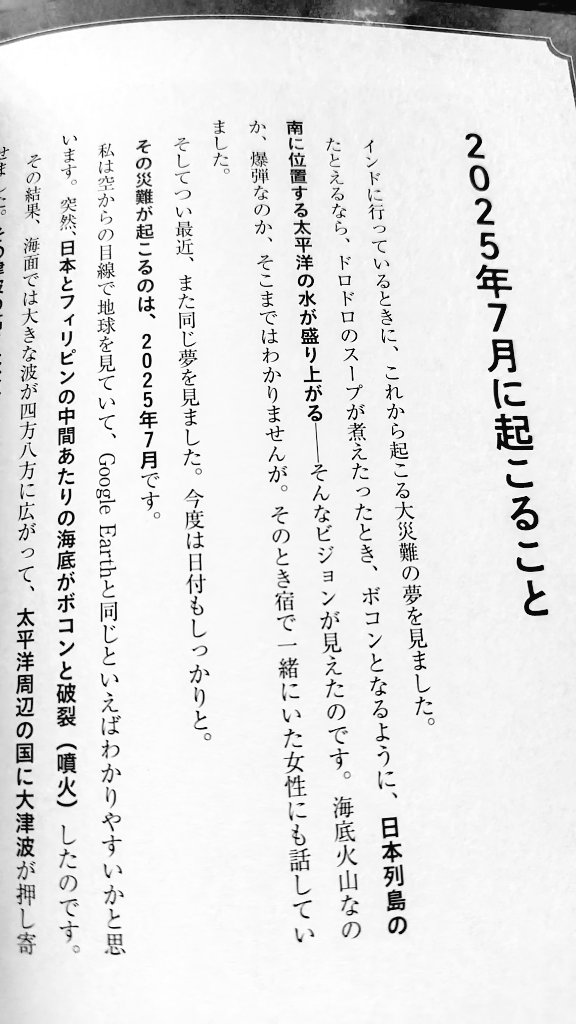 2025年7月に起こること
インドに行っているときに、これから起こる大災難の夢を見ました。
たとえるなら、ドロドロのスープが煮えたったとき、ボコンとなるように、日本列島の
南に位置する太平洋の水が盛り上がる――そんなビジョンが見えたのです。海底火山なの
か、爆弾なのか、そこまではわかりませんが。そのとき宿で一緒にいた女性にも話してい
ました。
そしてつい最近、また同じ夢を見ました。今度は日付もしっかりと。
その災難が起こるのは、2025年7月です。
私は空からの目線で地球を見ていて、Google Earthと同じといえばわかりやすいかと思
います。突然、日本とフィリピンの中間あたりの海底がボコンと破裂（噴火）したのです。
その結果、海面では大きな波が四方八方に広がって、太平洋周辺の国に大津波が押し寄
せました。その津波の高